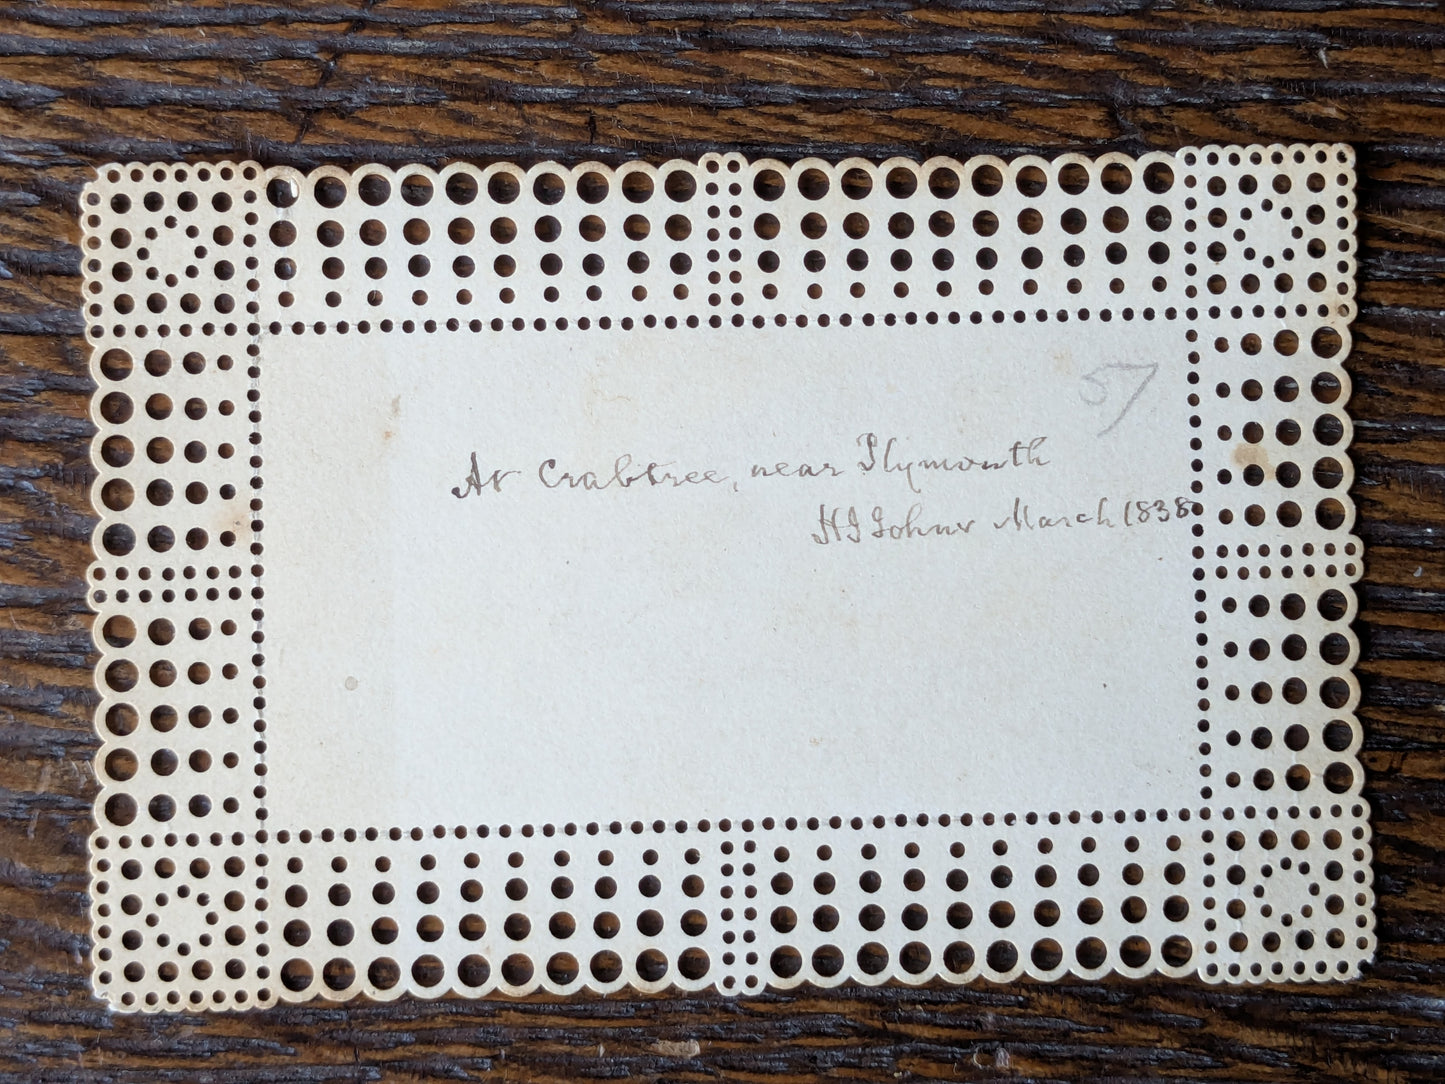 57
At Crabtree, near Plymouth
HI Johns March 1838